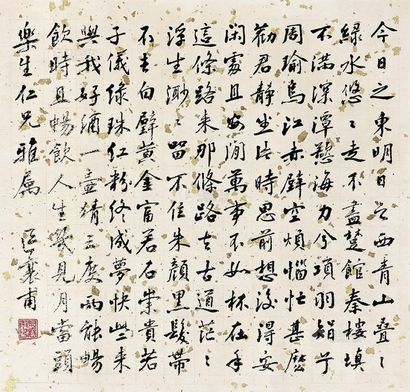 今日之東明日之西青山疊〻
綠水悠〻走不盡楚館秦樓填
不滿深潭慾海力兮項羽智乎
周瑜烏江赤壁空煩惱忙甚麼
勸君靜坐片時思前想後得安
閒處且安閒萬事不如杯在手
這條路來那條路去古道茫〻
浮生渺〻留不住朱顏黑髮帶
不去白璧黃金富若石崇貴若
子儀綠珠紅粉終成夢快些來
與我好酒一壺猜三度兩能暢
飲時且暢飲人生幾見月當頭
樂生仁兄雅屬 區襄甫